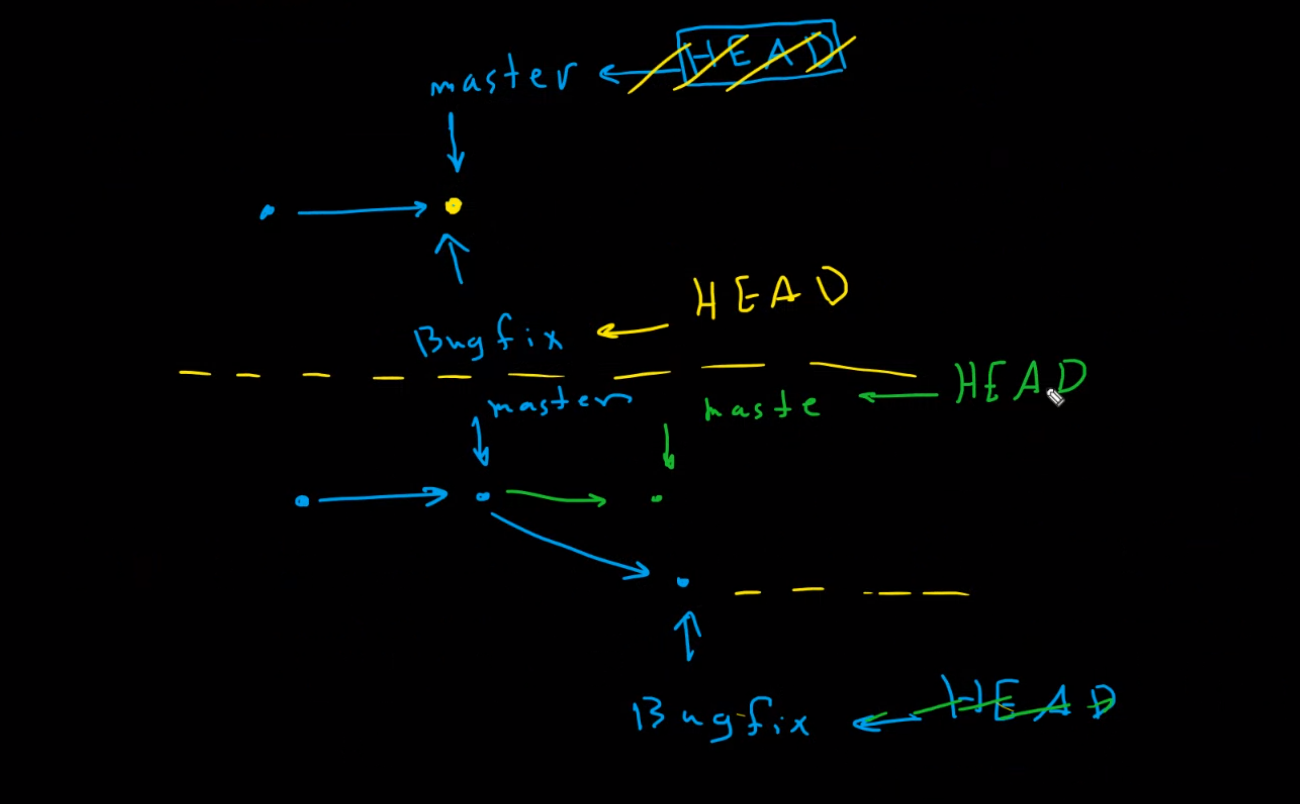 master HEAD
HEAD
Bugfix
master
maste
HEAD
Bugfix HEAD